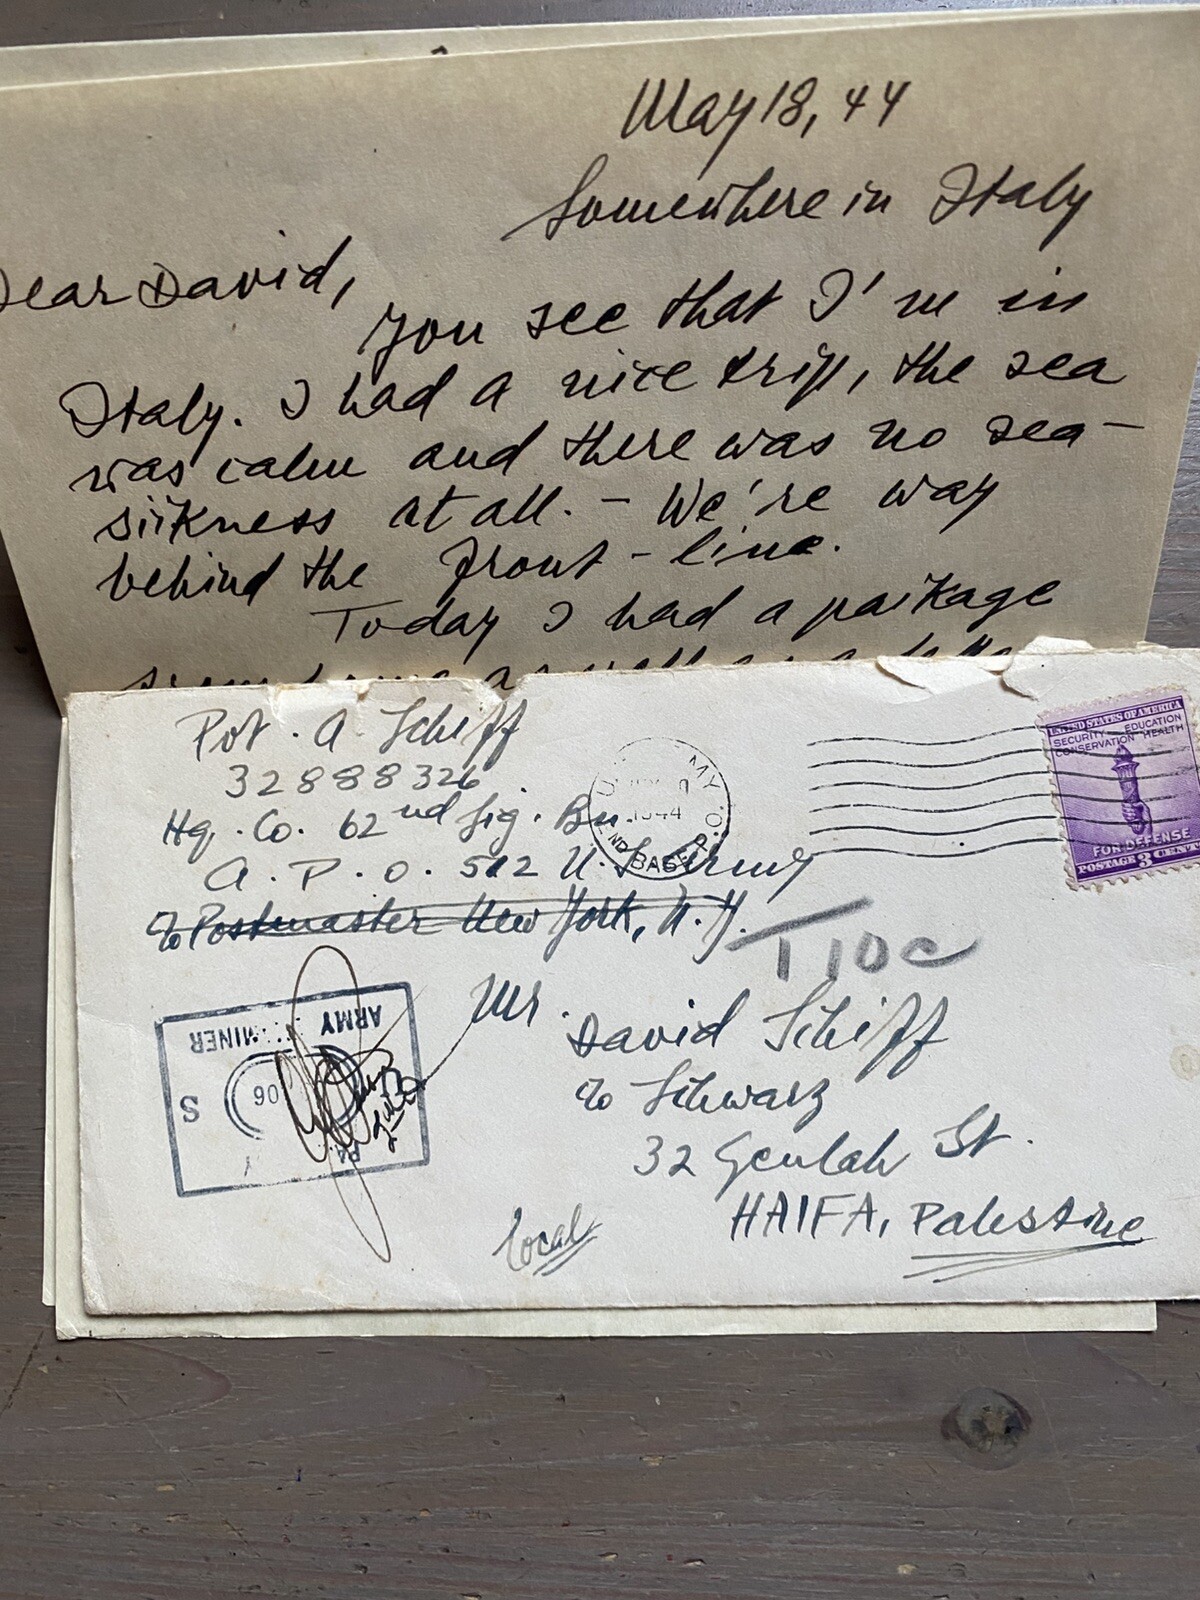 May 18, 44
Somewhere in Italy
Dear David,
You see that I'm in
Italy. I had a nice trip, the sea
was calm and there was no sea-
sickness at all. - We're way
behind the front-line.
Today I had a package
from home as well as a
Pvt. A Schiff
32888326
Hq. Co. 62nd Sig. Bn.
A.P.O. 512 U.S. Army
c/o Postmaster New York, N.Y.
1944
BASE
UNITED STATES OF AMERICA
SECURITY EDUCATION
CONSERVATION HEALTH
FOR DEFENSE
POSTAGE 3 CENTS
T10c
Mr. David Schiff
c/o Schwarz
32 Geulah St.
HAIFA, Palestine
Local
ARMY
MINER
S